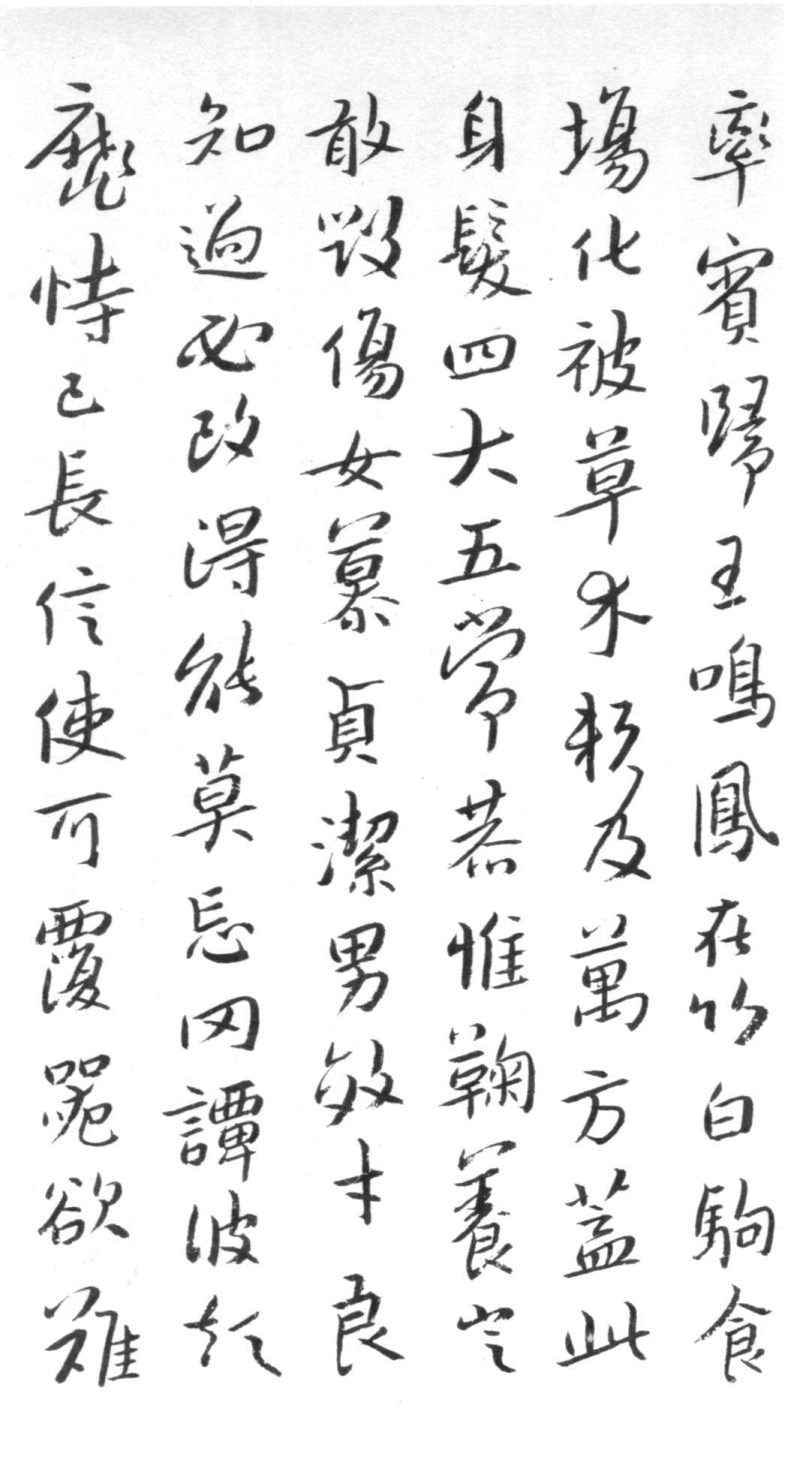 率賓歸王鳴鳳在竹白駒食
場化被草木賴及萬方蓋此
身髮四大五常恭惟鞠養豈
敢毀傷女慕貞潔男效才良
知過必改得能莫忘罔譚彼短
靡恃己長信使可覆器欲難